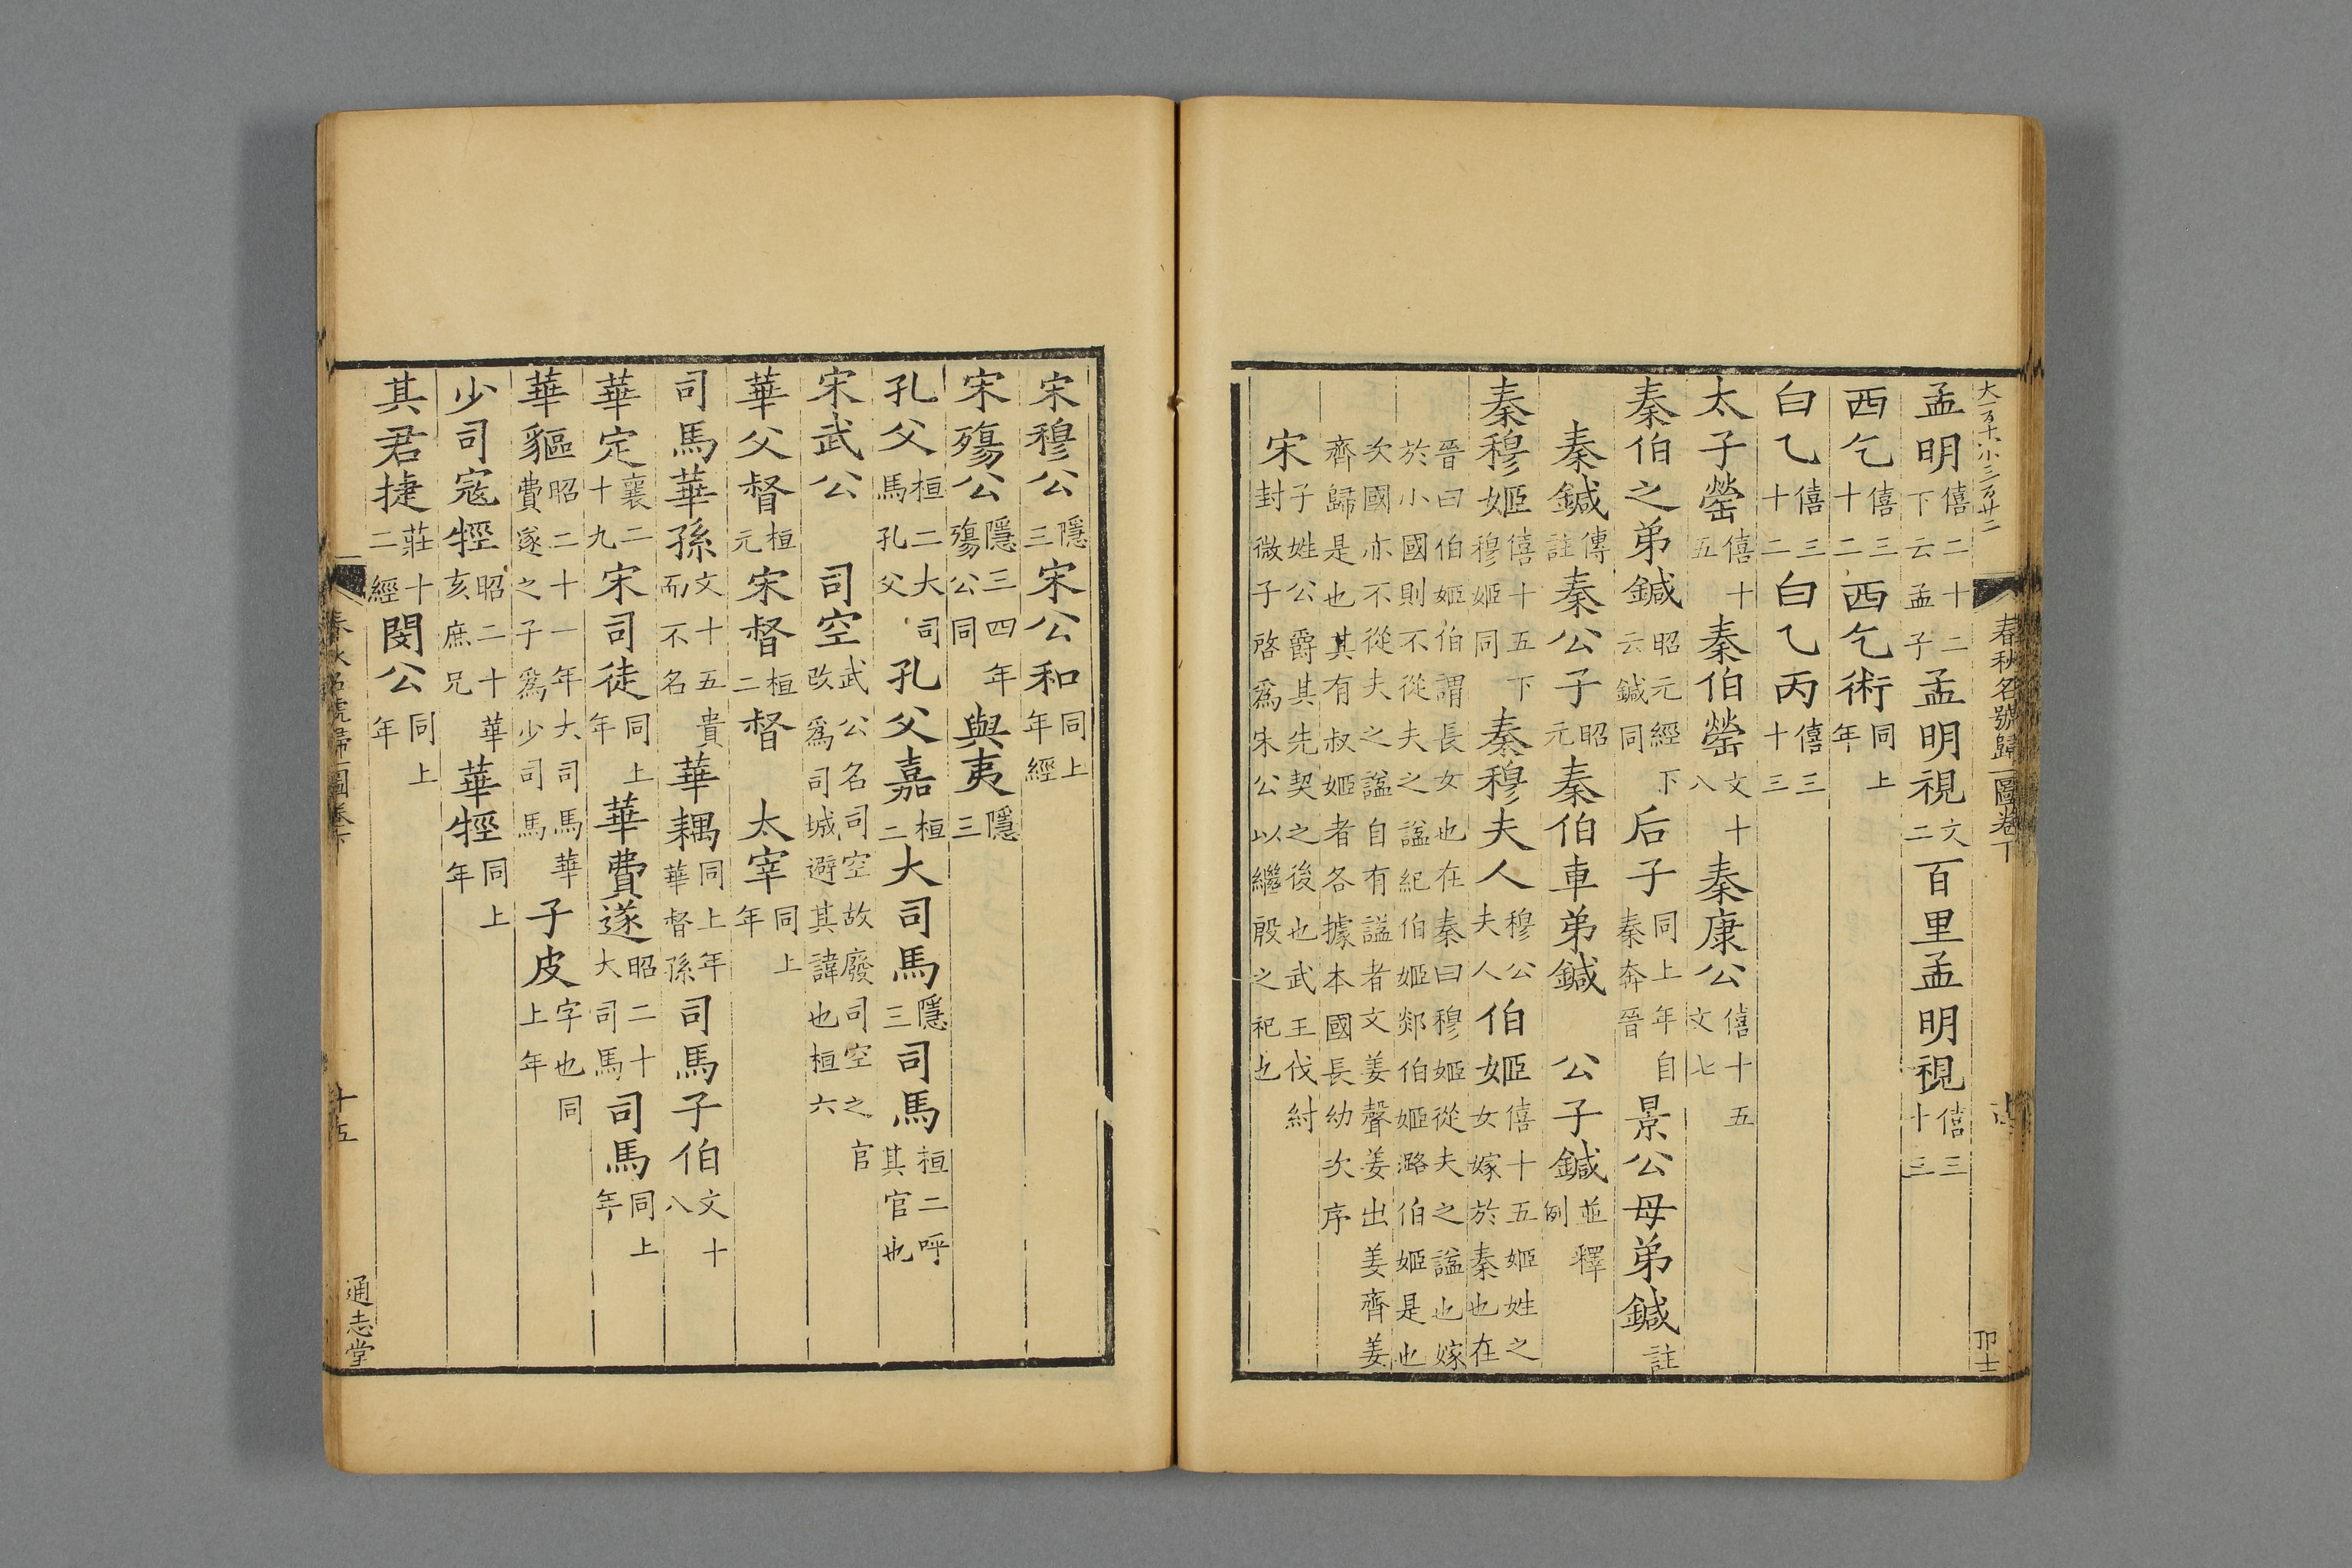 大一百十六小三百廾二
春秋名號歸一圖卷下
孟明僖二十二下云孟子孟明視文二百里孟明視僖三十三
西乞僖三十二西乞術同上年
白乙僖三十二白乙丙僖三十三
太子罃僖十五秦伯罃文十八秦康公僖十五文七
秦伯之弟鍼昭元經下云鍼同后子同上年自秦奔晉景公母弟鍼註
秦鍼傳註秦公子昭元秦伯車弟鍼公子鍼並釋例
秦穆姬僖十五下穆姬同秦穆夫人穆公夫人伯姬僖十五姬姓之女嫁於秦也在
晉曰伯姬伯謂長女也在秦曰穆姬從夫之諡也嫁於小國則不從夫之諡紀伯姬郯伯姬潞伯姬是也
次國亦不從夫之諡自有諡者文姜聲姜出姜齊姜齊歸是也其有叔姬者各據本國長幼次序
宋子姓公爵其先契之後也武王伐紂封微子啓爲宋公以繼殷之祀也
宋穆公隱三宋公和同上年經
宋殤公隱三四年殤公同與夷隱三
孔父桓二大司馬孔父孔父嘉桓二大司馬隱三司馬桓二呼其官也
宋武公司空武公名司空故廢司空之官改爲司城避其諱也桓六
華父督桓元宋督桓二督太宰同上年
司馬華孫文十五貴而不名華耦同上年華督孫司馬子伯文十八
華定襄二十九宋司徒同上年華費遂昭二十大司馬司馬同上年
華貙昭二十一年大司馬華費遂之子爲少司馬子皮字也同上年
少司寇牼昭二十華亥庶兄華牼同上年
其君捷莊十二經閔公同上年
十五
通志堂